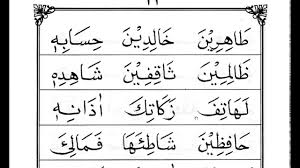 طَاهِرِيْنَ خَالِدِيْنَ حِسَابِهٖ
ظَالِمِيْنَ ثَاقِفِيْنَ شَاهِدِهٖ
لَهَاتِفَ زَكَاتِكَ اٰذَانِهٖ
حَافِظِيْنَ شَاطِئِهَا فَمَالِئُ